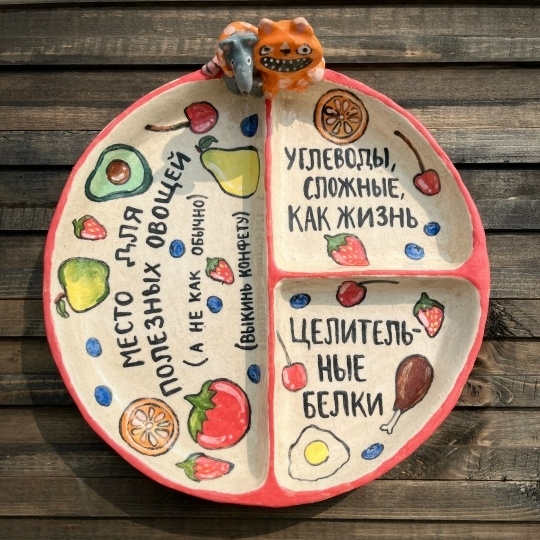 МЕСТО ДЛЯ
ПОЛЕЗНЫХ ОВОЩЕЙ
(А НЕ КАК ОБЫЧНО)
(ВЫКИНЬ КОНФЕТУ)
УГЛЕВОДЫ,
СЛОЖНЫЕ,
КАК ЖИЗНЬ
ЦЕЛИТЕЛЬ-
НЫЕ
БЕЛКИ